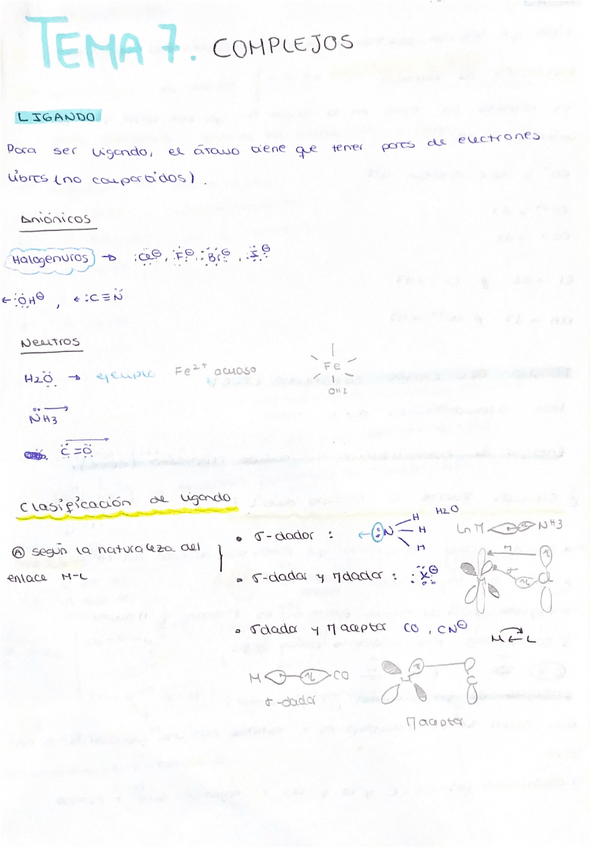 TEMA 7. COMPLEJOS
LIGANDO
Para ser ligando, el átomo tiene que tener pares de electrones
libres (no compartidos).
Aniónicos
Halogenuros → :Cl⊖, F⊖, Br⊖, I⊖
←:ÖH⊖, ←:C≡N
Neutros
H2Ö → ejemplo Fe2+ acuoso
Fe
OH2
NH3
C=O
Clasificación de ligando
Ⓐ según la naturaleza del
enlace M-L
• σ-dador : :N H H H H2O
Ln M NH3
• σ-dador y π dador : :X:⊖
π
σ
Cl
• σ dador y π aceptor CO, CN⊖
M ← L
M CO
σ-dador
M C
π aceptor